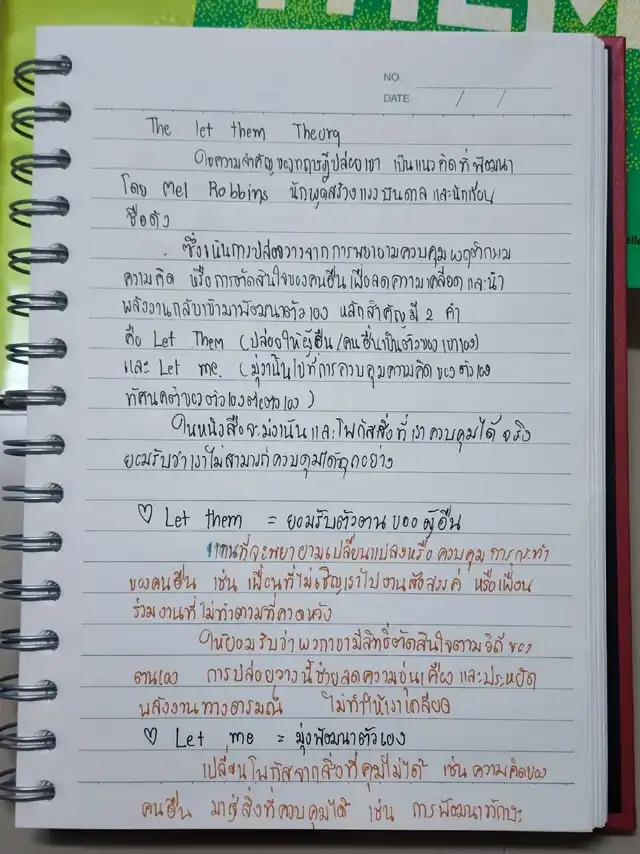 THEM
NO.
DATE / /
The let them Theory
ใจความสำคัญของทฤษฎีปล่อยเขา เป็นแนวคิดที่พัฒนา
โดย Mel Robbins นักพูดสร้างแรงบันดาลและนักเขียน
ชื่อดัง
ซึ่งเน้นการปล่อยวางจากการพยายามควบคุมพฤติกรรม
ความคิด หรือการตัดสินใจของคนอื่นเพื่อลดความเครียดและนำ
พลังงานกลับเข้ามาพัฒนาตัวเอง หลักสำคัญมี 2 คำ
คือ Let Them (ปล่อยให้ผู้อื่น/คนอื่นเป็นตัวของเขาเอง)
และ Let me. (มุ่งเน้นไปที่การควบคุมความคิดของตัวเอง
ทัศนคติของตัวเองต่อตัวเอง)
ในหนังสือจะมุ่งเน้นและโฟกัสสิ่งที่เราควบคุมได้จริง
ยอมรับว่าเราไม่สามารถควบคุมได้ทุกอย่าง
♡ Let them = ยอมรับตัวตนของผู้อื่น
แทนที่จะพยายามเปลี่ยนแปลงหรือควบคุมการกระทำ
ของคนอื่น เช่น เพื่อนที่ไม่เชิญเราไปงานสังสรรค์ หรือเพื่อน
ร่วมงานที่ไม่ทำตามที่คาดหวัง
ให้ยอมรับว่าพวกเขามีสิทธิ์ตัดสินใจตามวิถีของ
ตนเอง การปล่อยวางนี้ช่วยลดความขุ่นเคือง และประหยัด
พลังงานทางอารมณ์ ไม่ทำให้เราเครียด
♡ Let me = มุ่งพัฒนาตัวเอง
เปลี่ยนโฟกัสจากสิ่งที่คุมไม่ได้ เช่น ความคิดของ
คนอื่น มาสู่สิ่งที่ควบคุมได้ เช่น การพัฒนาทักษะ